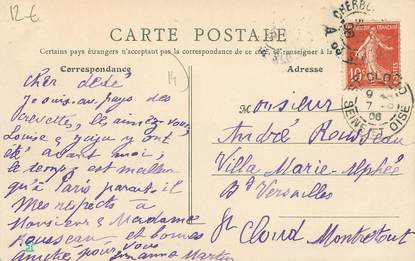 12€
CARTE POSTALE
Certains pays étrangers n'acceptant pas la correspondance de ce côté, se renseigner à la
Correspondance
Adresse
14
CHERBO
SEINE ET OISE
9
7
06
10
Cher dédé
Je suis au pays des
crevettes, les aimez vous
Louise, y ont
été avant moi;
le temps est meilleur
qu'à Paris paraît-il
Mes respects à
Monsieur & Madame
Rousseau et bonnes
amitiés pour vous
Martin
Monsieur
André Rousseau
Villa Marie-Alphée
Bd Versailles
St Cloud Montretout